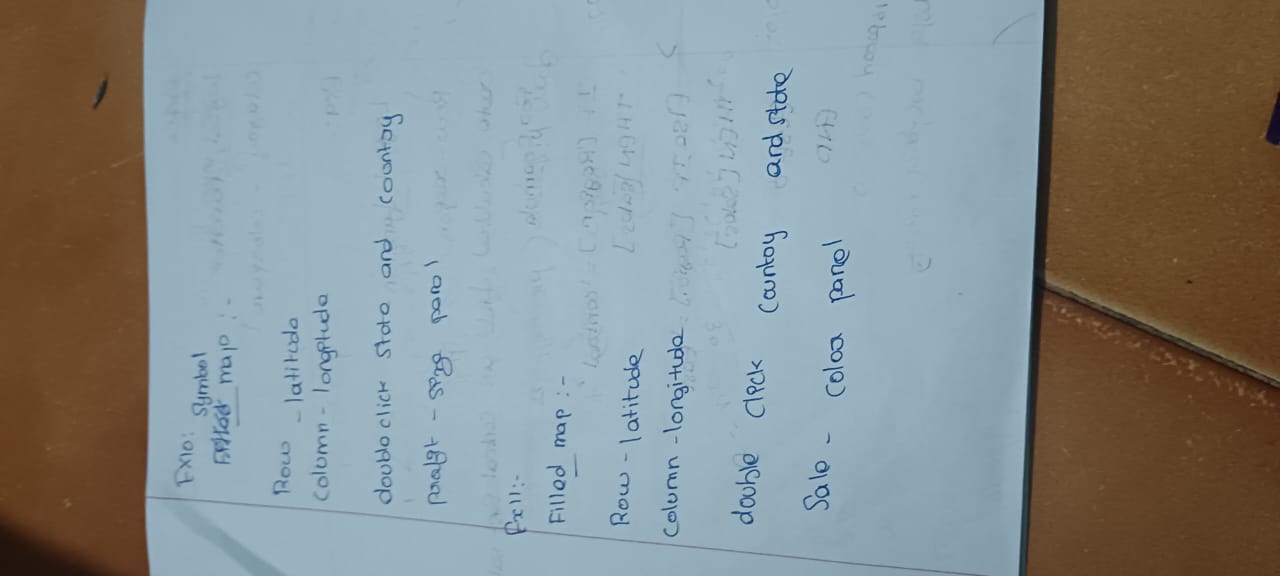 EX10: Symbol
map :-
Row - latitude
Column - longitude
double click state and country
profit - size panel
Ex11:-
Filled map :-
Row - latitude
Column - longitude
double click country and state
Sale - colour panel